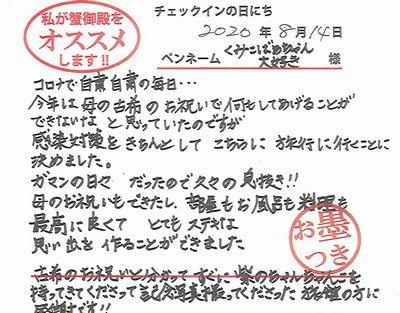 私が蟹御殿を
オススメ
します!!
チェックインの日にち
2020年8月14日
ペンネーム くみこばぁちゃん大好き 様
コロナで自粛自粛の毎日…
今年は母の古希のお祝いで何もしてあげることが
できないなと思っていたのですが
感染対策をきちんとして こちらに旅行に行くことに
決めました。
ガマンの日々だったので久々の息抜き!!
母のお祝いもできたし、部屋もお風呂も料理も
最高に良くて とてもステキな
思い出を作ることができました
お墨つき
古希のお祝いと分かってすぐに紫のちゃんちゃんこを
持ってきてくださって記念写真撮ってくださった旅館の方に
感謝です!!